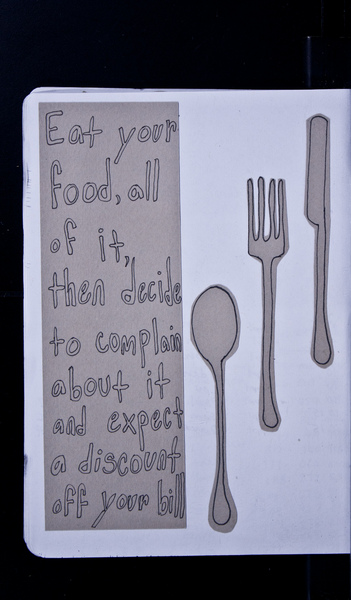 Eat your
food, all
of it,
then decide
to complain
about it
and expect
a discount
off your bill